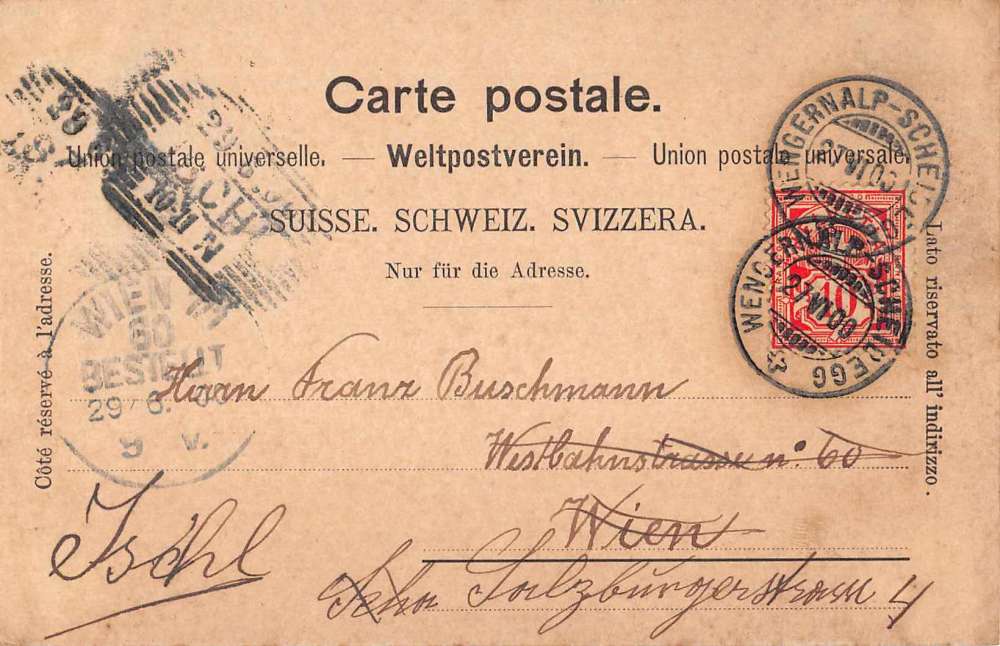 Carte postale.
Union postale universelle. — Weltpostverein. — Union postale universale.
SUISSE. SCHWEIZ. SVIZZERA.
Nur für die Adresse.
Côté réservé à l'adresse.
Lato riservato all' indirizzo.
WENGERNALP-SCHEIDEGG
27 VI 00
WENGERNALP-SCHEIDEGG
27 VI 00
10
29
ISCHL
10-11 N
WIEN
60
BESTELLT
29 6. 00
9 V.
Herrn Franz Buschmann
Westbahnstrasse no. 60
Wien
Ischl
Salzburgerstrasse 4